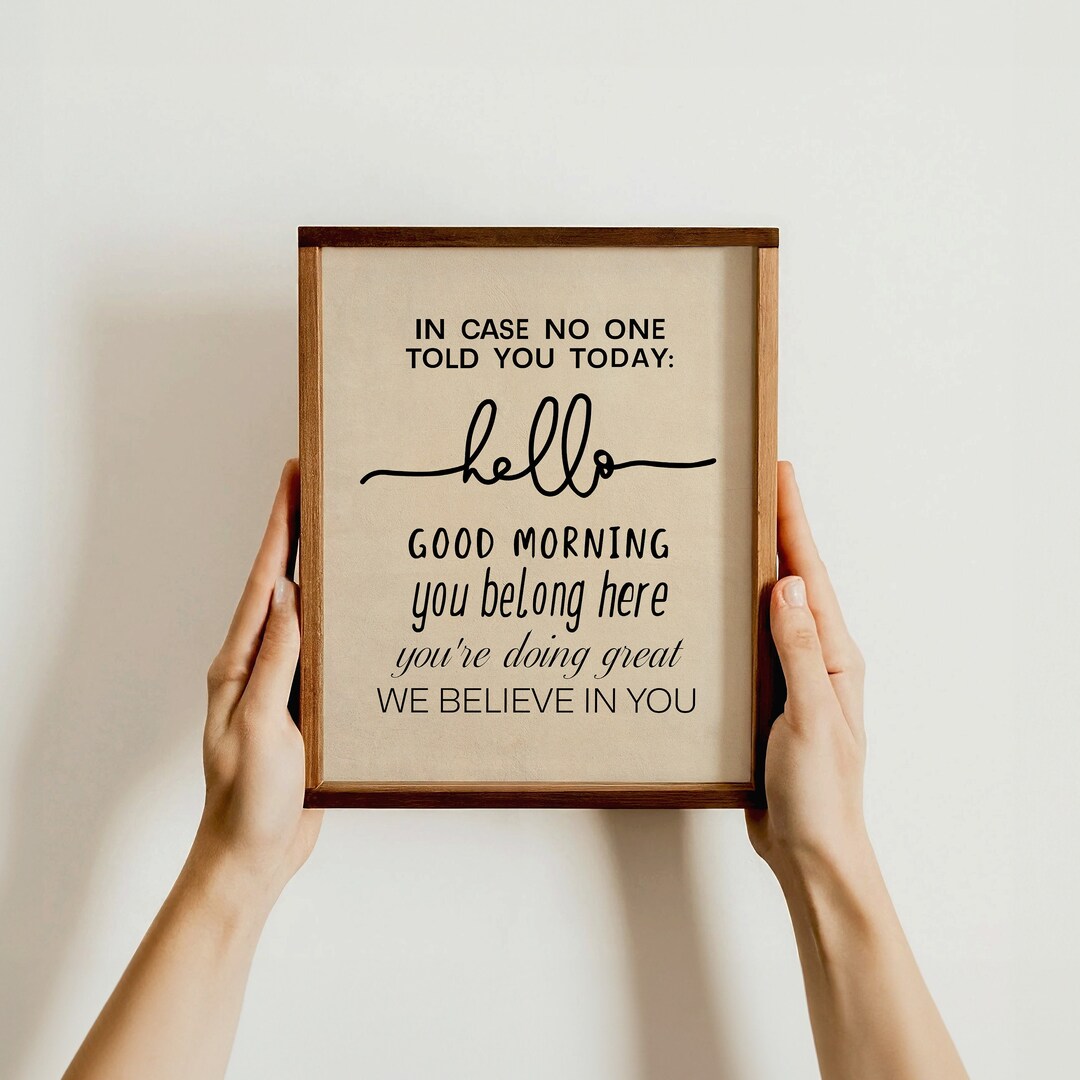 IN CASE NO ONE
TOLD YOU TODAY:
hello
GOOD MORNING
you belong here
you're doing great
WE BELIEVE IN YOU